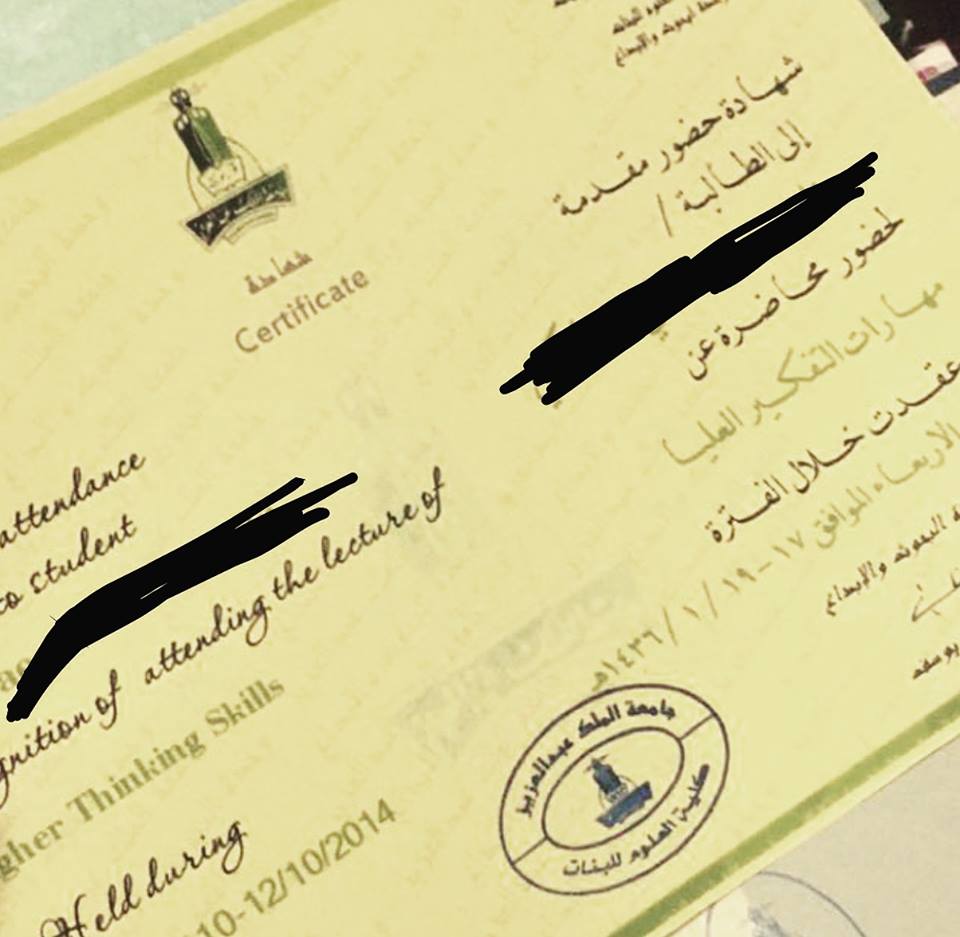 شهادة
Certificate
attendance
to student
gnition of attending the lecture of
gher Thinking Skills
Held during
10-12/10/2014
شهادة حضور مقدمة
إلى الطالبة /
لحضور محاضرة عن
مهارات التفكير العليا
عقدت خلال الفترة
الاربعاء الموافق ١٧-١٩ / ١ / ١٤٣٦هـ
البحوث والإبداع
جامعة الملك عبدالعزيز
كلية العلوم للبنات